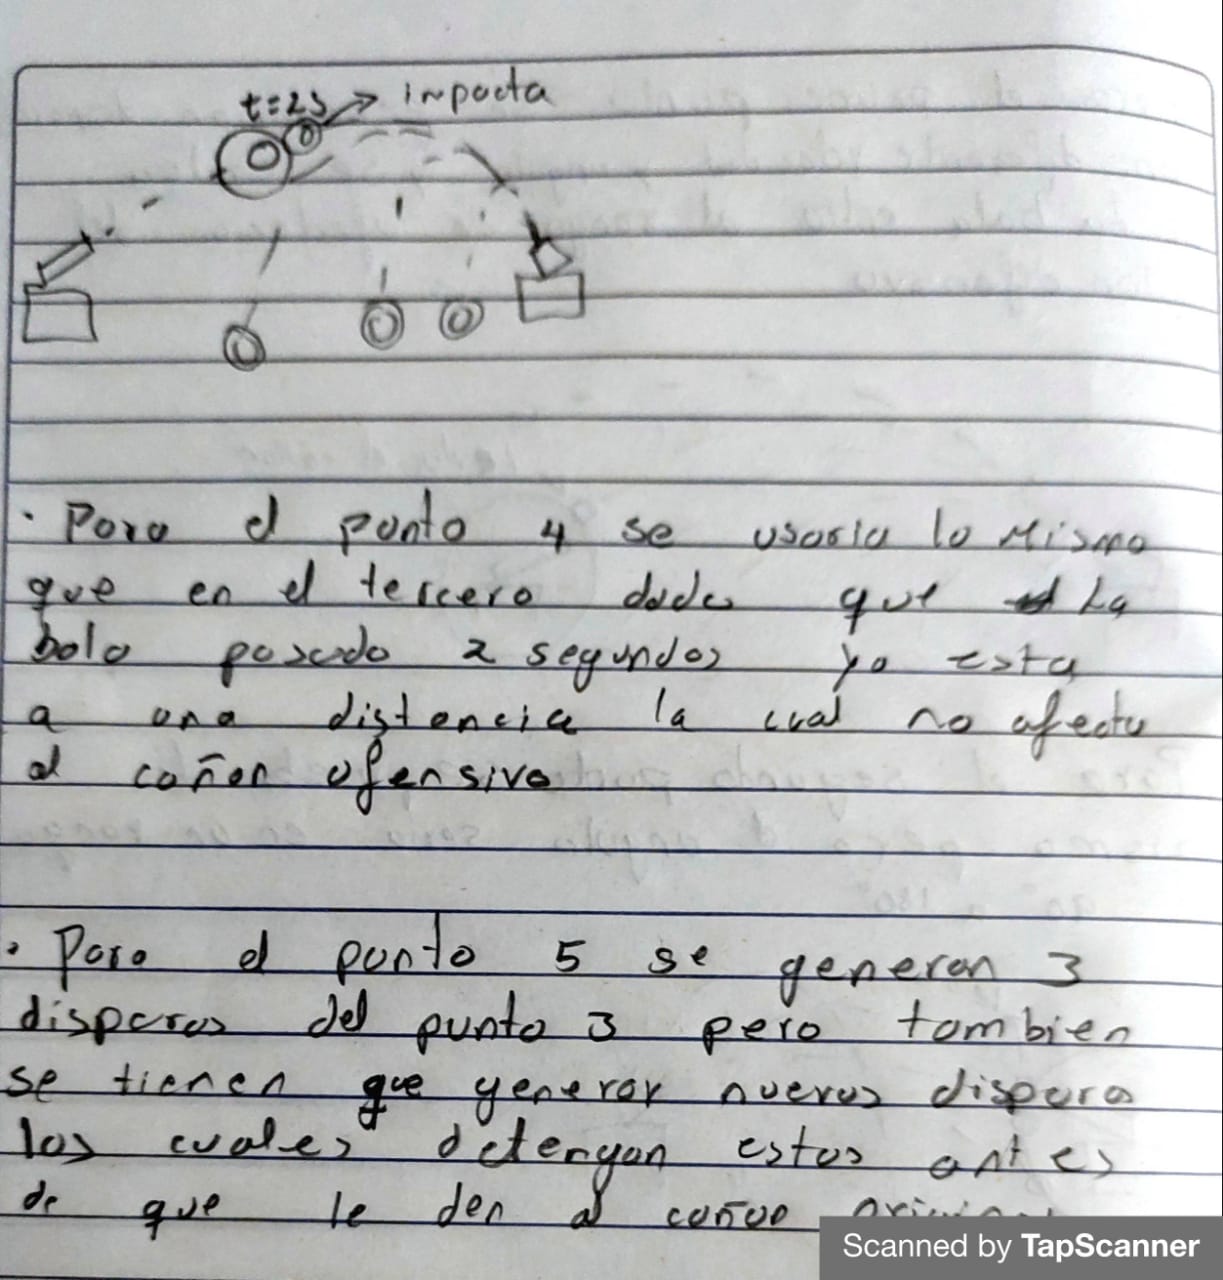 t=2s → impacta
· Para el punto 4 se usaria lo Mismo
que en el tercero dado que La
bala pasado 2 segundos ya esta
a una distancia la cual no afecta
al cañon ofensivo
· Para el punto 5 se generan 3
disparos del punto 3 pero tambien
se tienen que generar nuevos disparos
los cuales detengan estos antes
de que le den al cañon
Scanned by TapScanner